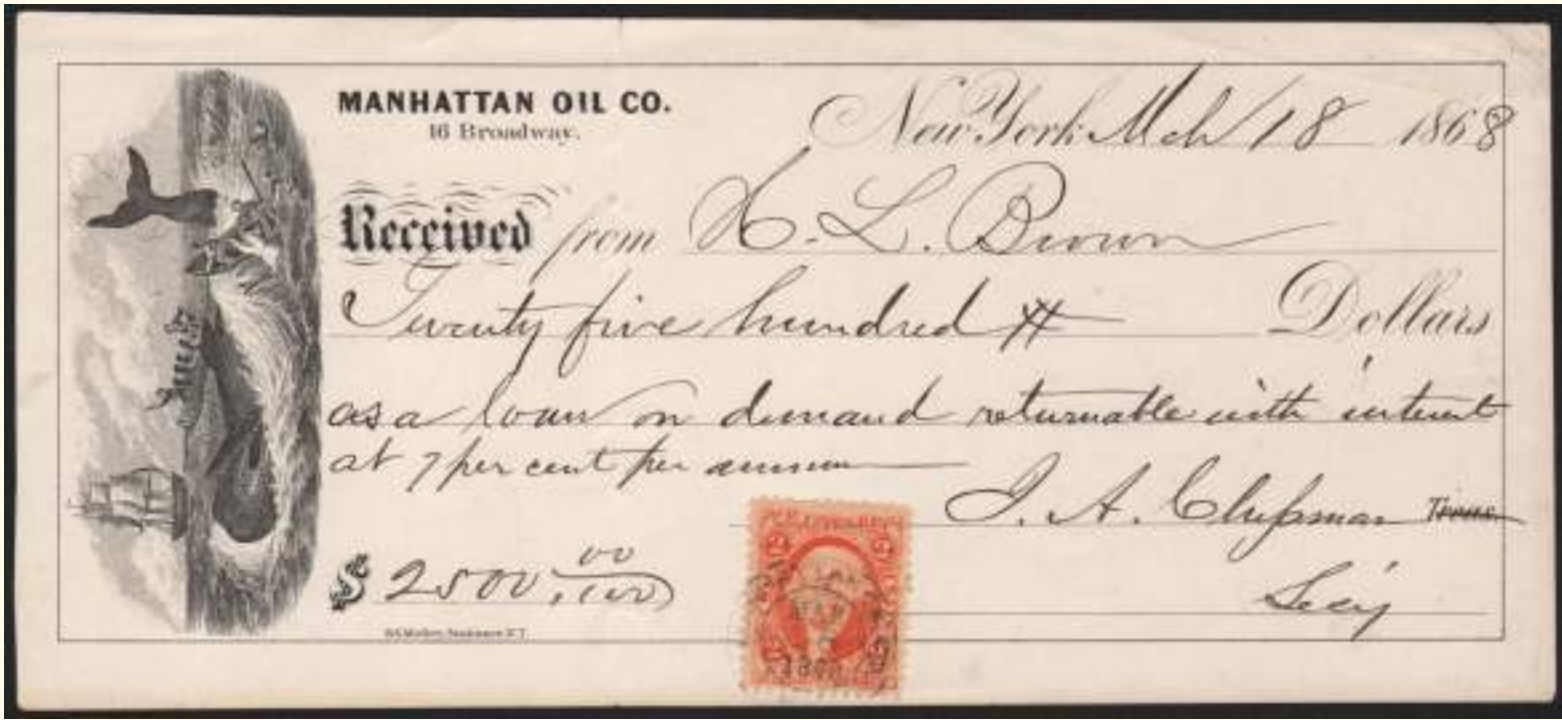 MANHATTAN OIL CO.
16 Broadway.
New York Mch 18 1868
Received from H. L. Brown
Twenty five hundred Dollars
as a loan on demand returnable with interest
at 7 per cent per annum
J. A. Chapman Treas.
Secy
$ 2500.00/100
2 2